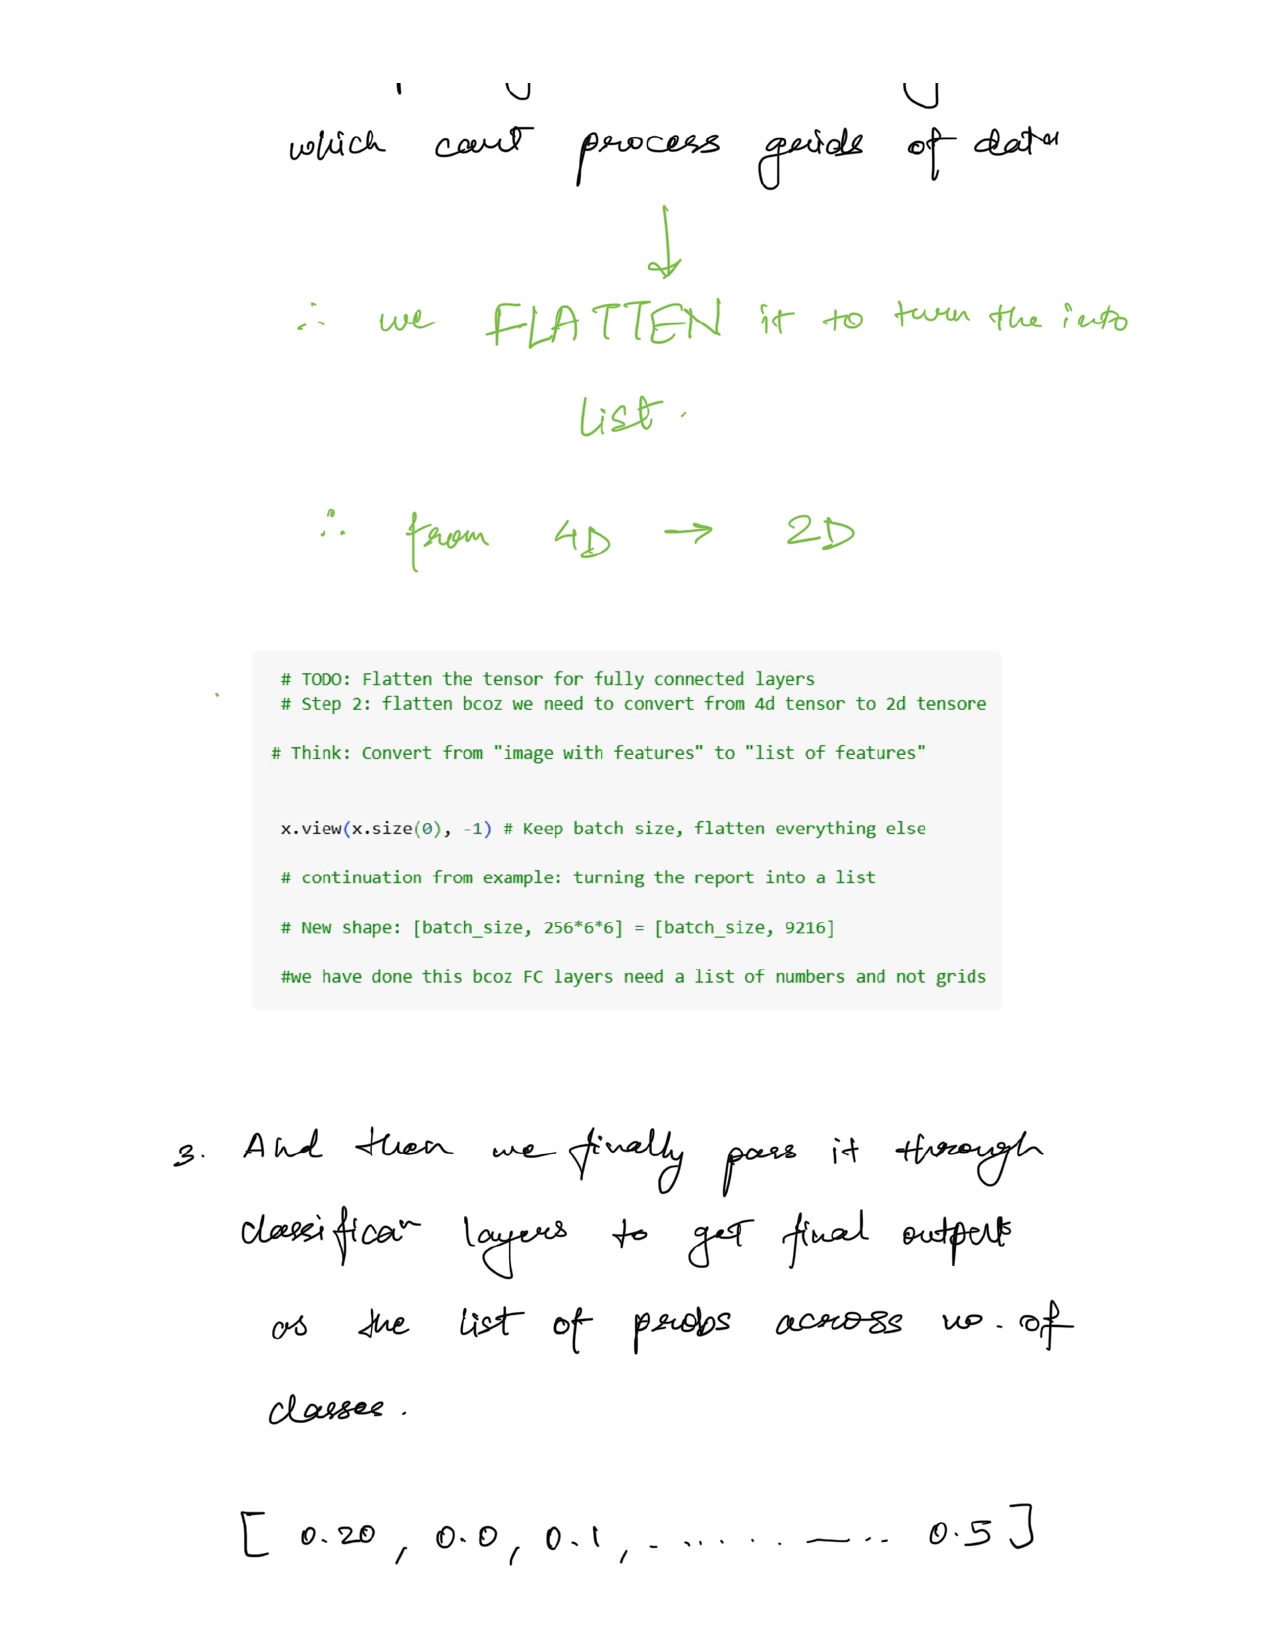 which cant process grids of data
∴ we FLATTEN it to turn the into
list.
∴ from 4D → 2D
# TODO: Flatten the tensor for fully connected layers
# Step 2: flatten bcoz we need to convert from 4d tensor to 2d tensore
# Think: Convert from "image with features" to "list of features"
x.view(x.size(0), -1) # Keep batch size, flatten everything else
# continuation from example: turning the report into a list
# New shape: [batch_size, 256*6*6] = [batch_size, 9216]
#we have done this bcoz FC layers need a list of numbers and not grids
3. And then we finally pass it through
classificaⁿ layers to get final outputs
as the list of probs across no. of
classes.
[ 0.20, 0.0, 0.1, - ...... — ... 0.5 ]